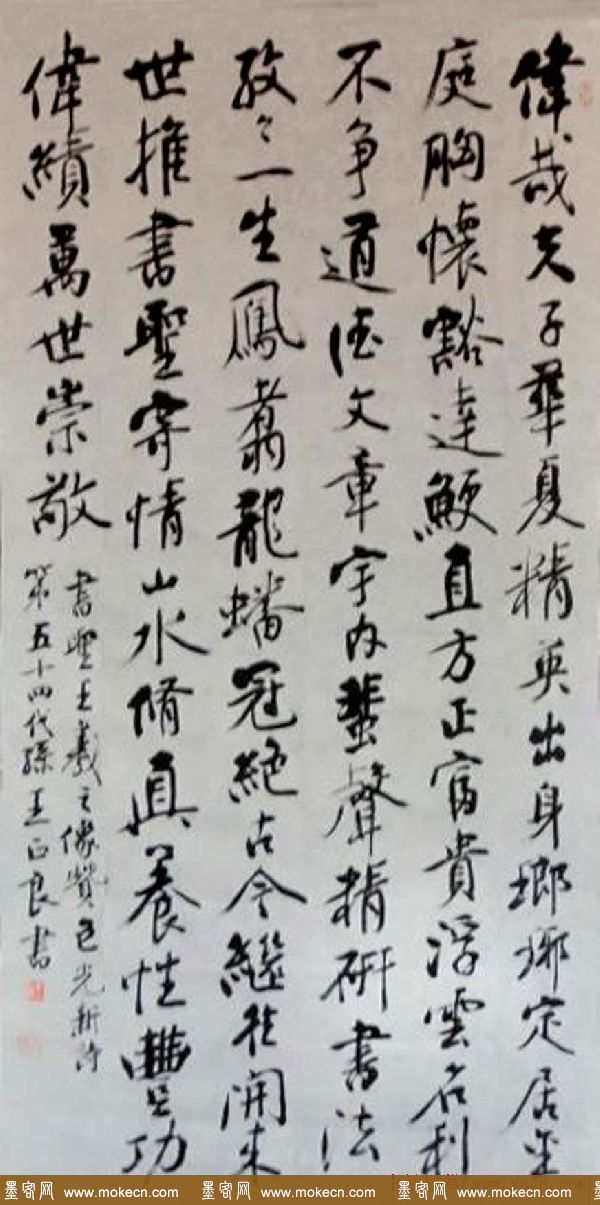 偉哉夫子華夏精英出身瑯琊定居金
庭胸懷豁達鯁直方正富貴浮雲名利
不争道德文章宇内蜚聲精研書法
孜々一生鳳翥龍蟠冠絕古今繼往開来
世推書聖寄情山水脩真養性豐功
偉績萬世崇敬
書聖王羲之像贊 光新詩
第五十四代孫王正良書
墨客网 www.mokecn.com 墨客网 www.mokecn.com 墨客网 www.mokecn.com